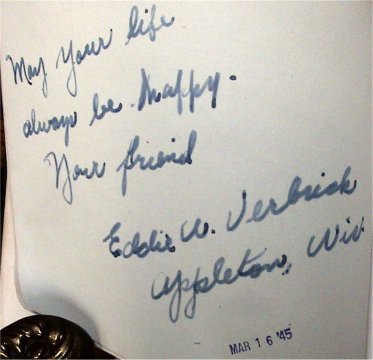 May your life
always be happy.
Your friend
Eddie W. Verbrick
Appleton, Wis.
MAR 16 '45